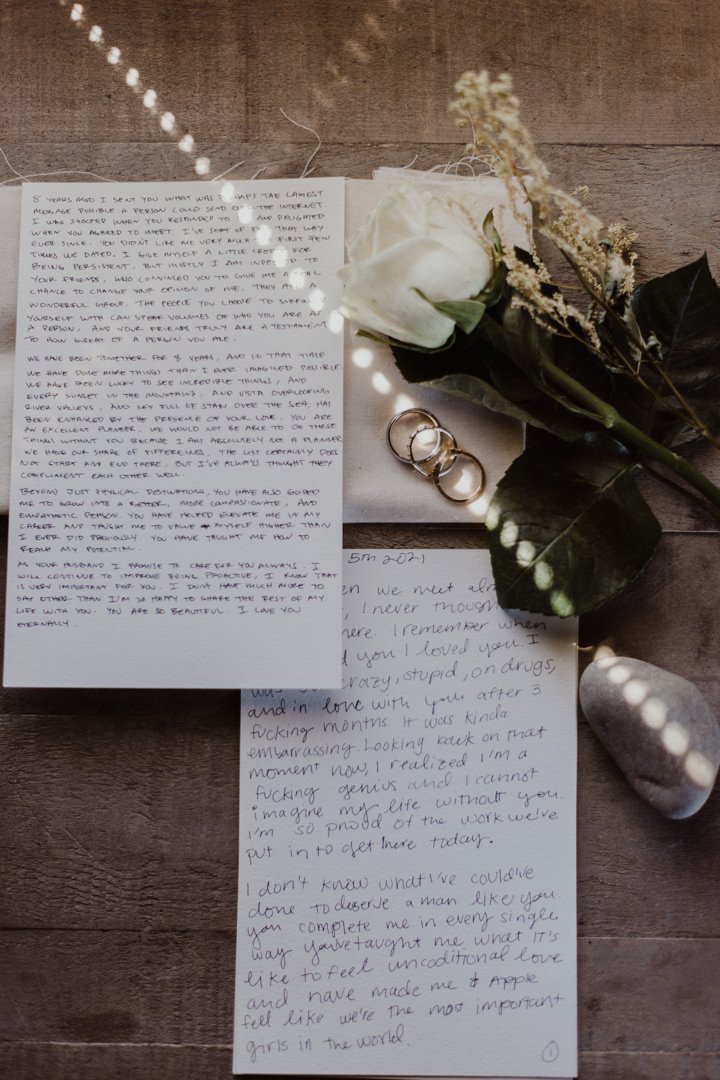 8 YEARS AGO I SENT YOU WHAT WAS PERHAPS THE LARGEST
MESSAGE POSSIBLE A PERSON COULD SEND OVER THE INTERNET.
I WAS SHOCKED WHEN YOU RESPONDED TO IT AND DELIGHTED
WHEN YOU AGREED TO MEET. I'VE SORT OF FELT THAT WAY
EVER SINCE. YOU DIDN'T LIKE ME VERY MUCH THE FIRST FEW
TIMES WE DATED, I GIVE MYSELF A LITTLE CREDIT FOR
BEING PERSISTENT, BUT MOSTLY I AM INDEBTED TO
YOUR FRIENDS, WHO CONVINCED YOU TO GIVE ME A
CHANCE TO CHANGE YOUR OPINION OF ME. THEY ARE A
WONDERFUL GROUP. THE PEOPLE YOU CHOOSE TO SURROUND
YOURSELF WITH CAN SPEAK VOLUMES OF WHO YOU ARE AS
A PERSON, AND YOUR FRIENDS TRULY ARE A TESTAMENT
TO HOW GREAT OF A PERSON YOU ARE.
WE HAVE BEEN TOGETHER FOR 8 YEARS, AND IN THAT TIME
WE HAVE DONE MORE THINGS THAN I EVER IMAGINED POSSIBLE.
WE HAVE BEEN LUCKY TO SEE INCREDIBLE THINGS, AND
EVERY SUNSET IN THE MOUNTAINS, AND VISTA OVERLOOKING
RIVER VALLEYS, AND SKY FULL OF STARS OVER THE SEA, HAS
BEEN ENHANCED BY THE PRESENCE OF YOUR LOVE. YOU ARE
AN EXCELLENT PLANNER. WE WOULD NOT BE ABLE TO DO THESE
THINGS WITHOUT YOU BECAUSE I AM ABSOLUTELY NOT A PLANNER.
WE HAVE OUR SHARE OF DIFFERENCES. THE LIST CERTAINLY DOES
NOT START AND END THERE. BUT I'VE ALWAYS THOUGHT THEY
COMPLIMENT EACH OTHER WELL.
BEYOND JUST PHYSICAL DESTINATIONS, YOU HAVE ALSO GUIDED
ME TO GROW INTO A BETTER, MORE COMPASSIONATE, AND
EMPATHETIC PERSON. YOU HAVE HELPED ELEVATE ME IN MY
CAREER AND TAUGHT ME TO VALUE MYSELF HIGHER THAN
I EVER DID PREVIOUSLY. YOU HAVE TAUGHT ME HOW TO
REACH MY POTENTIAL.
AS YOUR HUSBAND I PROMISE TO CARE FOR YOU ALWAYS. I
WILL CONTINUE TO IMPROVE BEING PROACTIVE, I KNOW THAT
IS VERY IMPORTANT FOR YOU. I DON'T HAVE MUCH MORE TO
SAY OTHER THAN I'M SO HAPPY TO SHARE THE REST OF MY
LIFE WITH YOU. YOU ARE SO BEAUTIFUL. I LOVE YOU
ETERNALLY.
5TH 2021
we met
, I never though
here. I remember when
you I loved you. I
was crazy, stupid, on drugs,
and in love with you after 3
fucking months. It was kinda
embarrassing. Looking back on that
moment now, I realized I'm a
fucking genius and I cannot
imagine my life without you.
I'm so proud of the work we've
put in to get here today.
I don't know what I've could've
done to deserve a man like you.
you complete me in every single
way you've taught me what it's
like to feel uncoditional love
and have made me & Apple
fell like we're the most important
girls in the world.
1